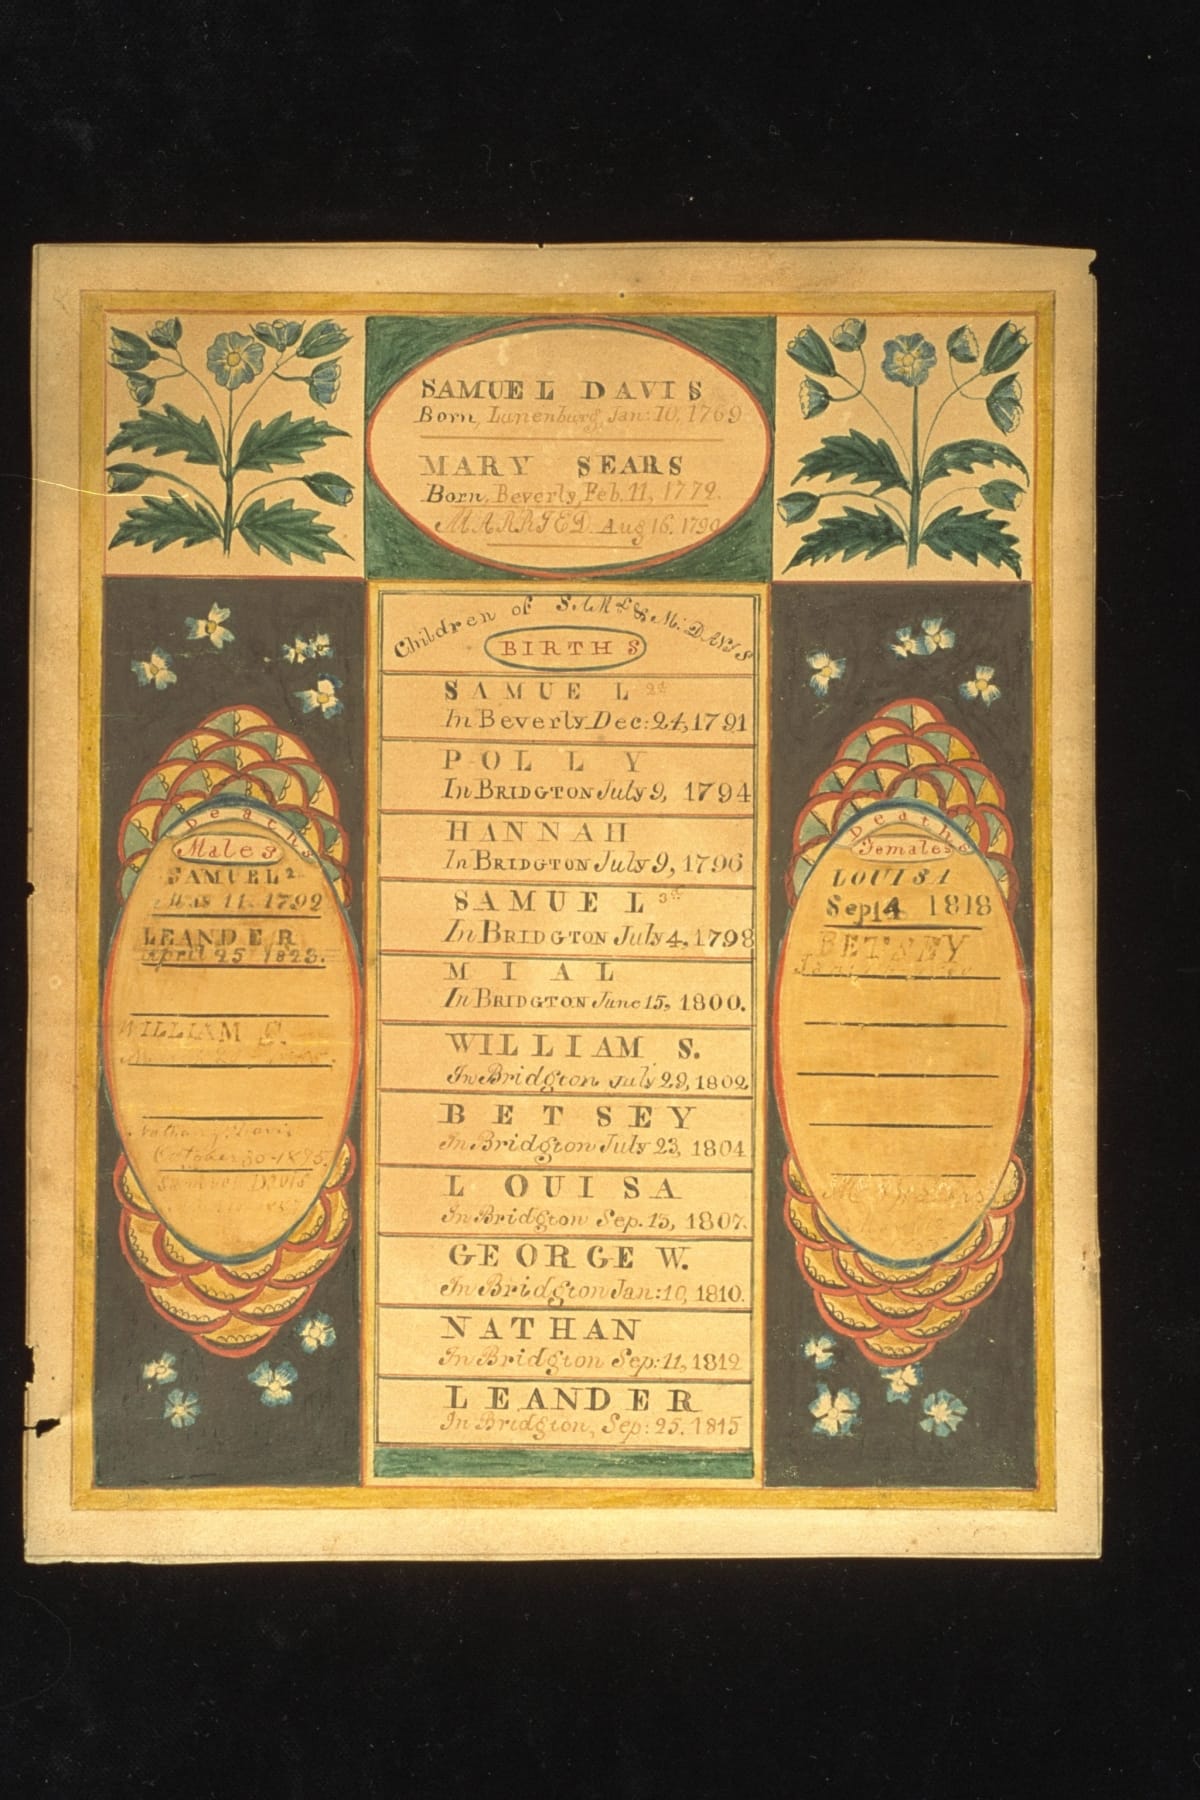 SAMUEL DAVIS
Born, Lunenburg, Jan: 10, 1769
MARY SEARS
Born, Beverly, Feb. 11, 1772.
MARRIED Aug 16. 1790
Children of SAML & M. DAVIS
BIRTHS
SAMUEL 2d
In Beverly Dec: 24, 1791
POLLY
In BRIDGTON July 9, 1794
HANNAH
In BRIDGTON July 9, 1796
SAMUEL 3d
In BRIDGTON July 4, 1798
MIAL
In BRIDGTON June 15, 1800.
WILLIAM S.
In Bridgton July 29, 1802
BETSEY
In Bridgton July 23, 1804
LOUISA
In Bridgton Sep. 13, 1807.
GEORGE W.
In Bridgton Jan: 10, 1810.
NATHAN
In Bridgton Sep: 11, 1812
LEANDER
In Bridgton, Sep: 25. 1815
Deaths
Males
SAMUEL 2
11. 1792
LEANDER
April 25 1823.
WILLIAM S.
Nathan Davis
October 30-1895.
Samuel Davis
Deaths
Females
LOUISA
Sep 14 1818
BETSEY